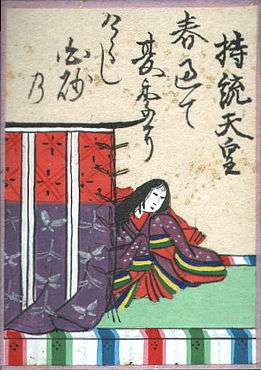 持統天皇
春過て
夏来に
けらし
白妙
乃